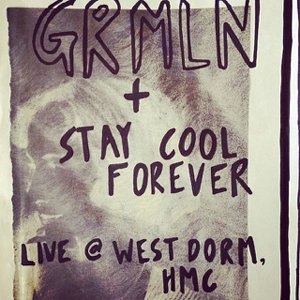 GRMLN
+
STAY COOL
FOREVER
LIVE @ WEST DORM,
HMC